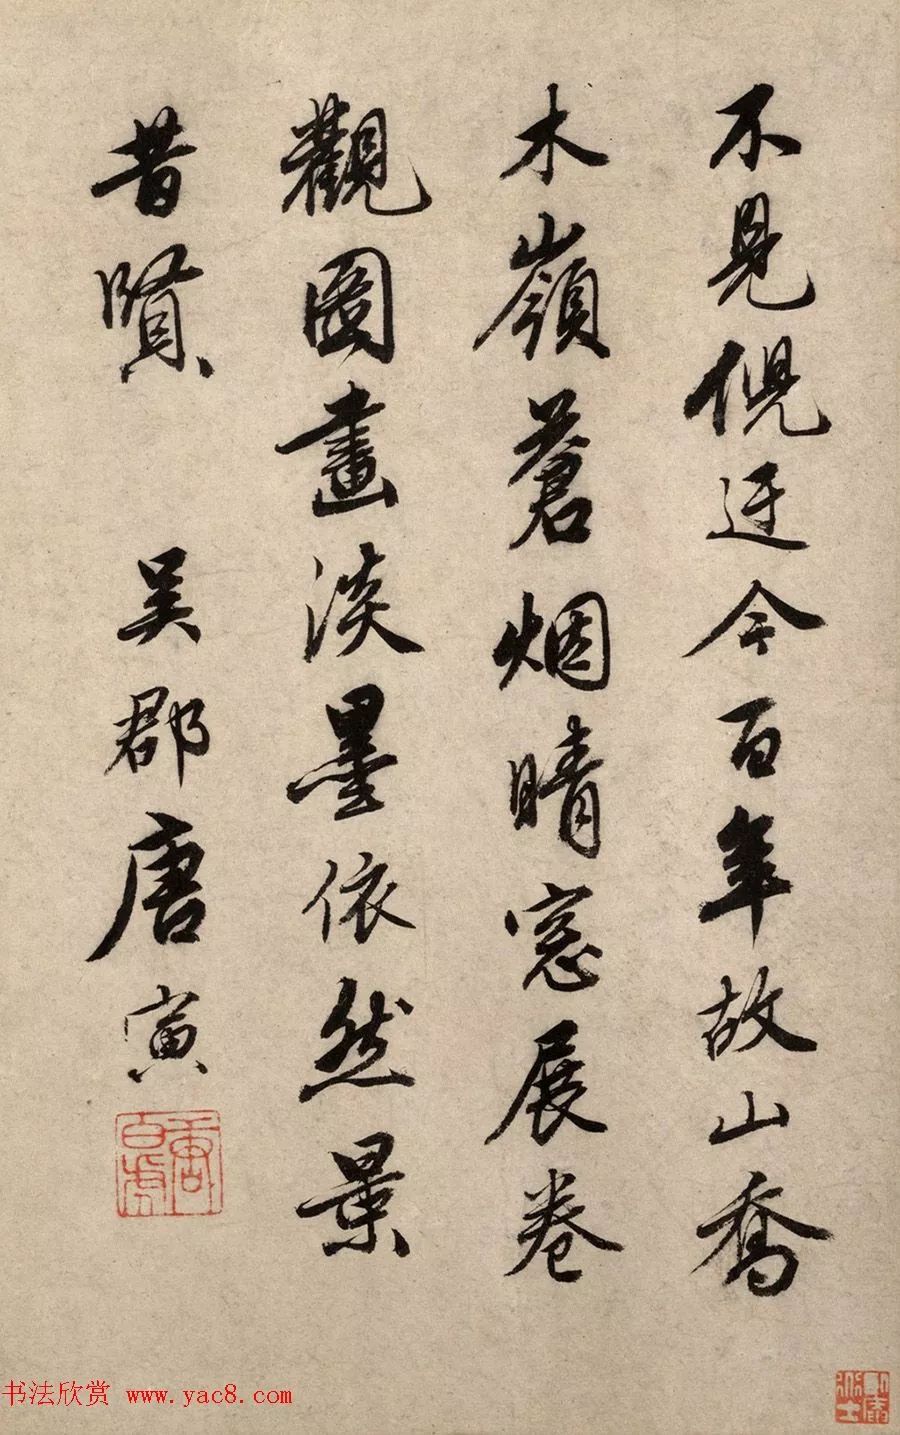 不見倪迂今百年故山喬
木嶺蒼烟晴窓展卷
觀圖畫淡墨依然景
昔賢 吴郡唐寅
唐伯虎
书法欣赏 www.yac8.com